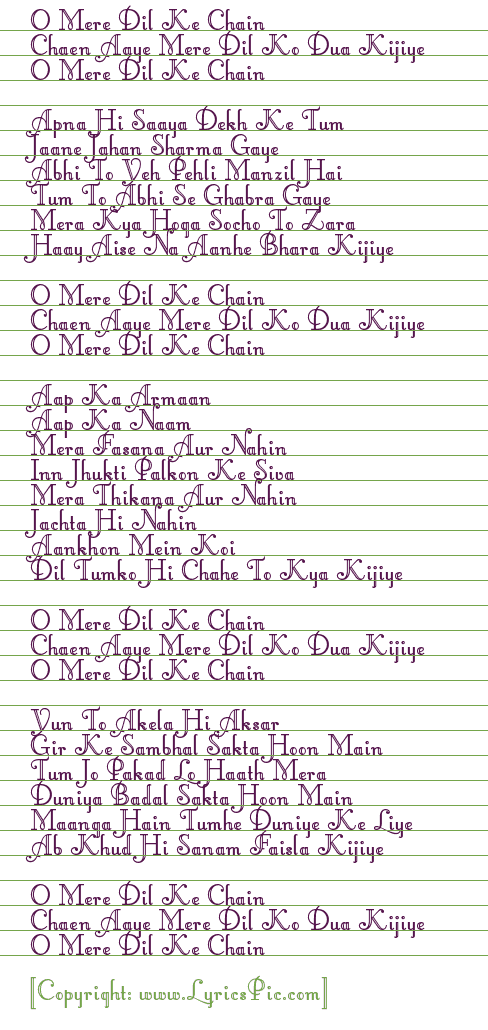 O Mere Dil Ke Chain
Chaen Aaye Mere Dil Ko Dua Kijiye
O Mere Dil Ke Chain

Apna Hi Saaya Dekh Ke Tum
Jaane Jahan Sharma Gaye
Abhi To Yeh Pehli Manzil Hai
Tum To Abhi Se Ghabra Gaye
Mera Kya Hoga Socho To Zara
Haay Aise Na Aanhe Bhara Kijiye

O Mere Dil Ke Chain
Chaen Aaye Mere Dil Ko Dua Kijiye
O Mere Dil Ke Chain

Aap Ka Armaan
Aap Ka Naam
Mera Fasana Aur Nahin
Inn Jhukti Palkon Ke Siva
Mera Thikana Aur Nahin
Jachta Hi Nahin
Aankhon Mein Koi
Dil Tumko Hi Chahe To Kya Kijiye

O Mere Dil Ke Chain
Chaen Aaye Mere Dil Ko Dua Kijiye
O Mere Dil Ke Chain

Yun To Akela Hi Aksar
Gir Ke Sambhal Sakta Hoon Main
Tum Jo Pakad Lo Haath Mera
Duniya Badal Sakta Hoon Main
Maanga Hain Tumhe Duniye Ke Liye
Ab Khud Hi Sanam Faisla Kijiye

O Mere Dil Ke Chain
Chaen Aaye Mere Dil Ko Dua Kijiye
O Mere Dil Ke Chain

[Copyright: www.LyricsPic.com]